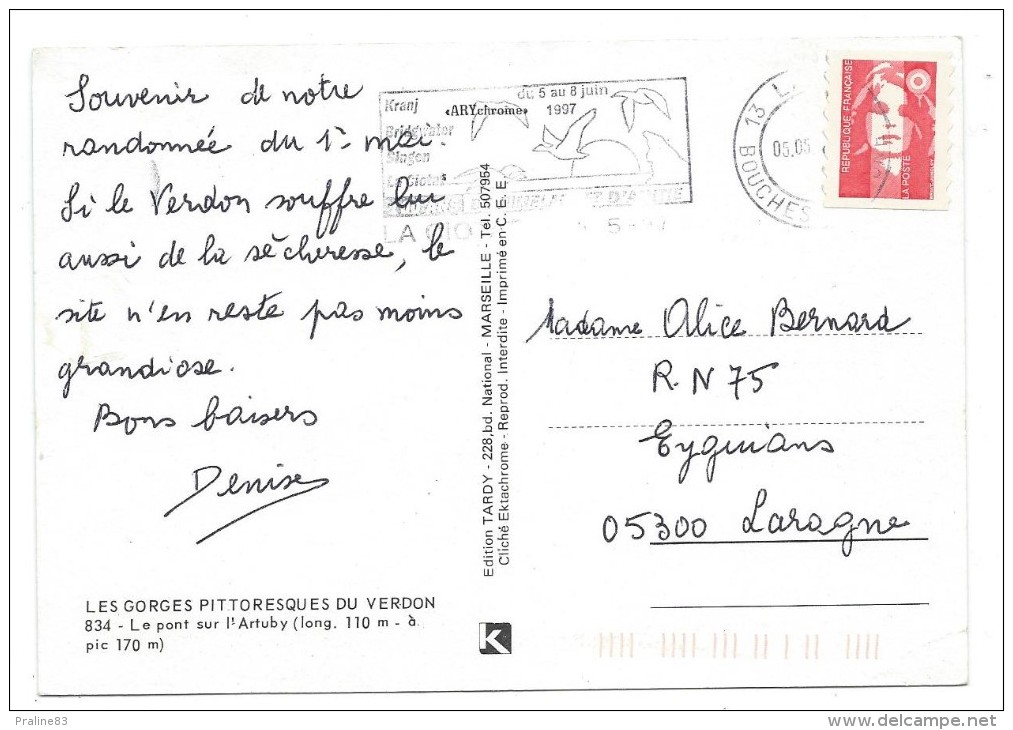 Souvenir de notre
randonnée du 1er mai.
Si le Verdon souffre lui
aussi de la sècheresse, le
site n'en reste pas moins
grandiose.
Bons baisers
Denise
LES GORGES PITTORESQUES DU VERDON
834 - Le pont sur l'Artuby (long. 110 m - à
pic 170 m)
Kranj
Bridgwater
Singen
du 5 au 8 juin
«ARYchrome» 1997
LA CIO
Edition TARDY - 228,bd. National - MARSEILLE - Tel. 507954
Cliché Ektachrome - Reprod. Interdite - Imprimé en C. E. E.
K
13
05.05
BOUCHES
REPUBLIQUE FRANÇAISE
LA POSTE
Madame Alice Bernard
R.N 75
Eyguians
05300 Laragne
Praline83
www.delcampe.net